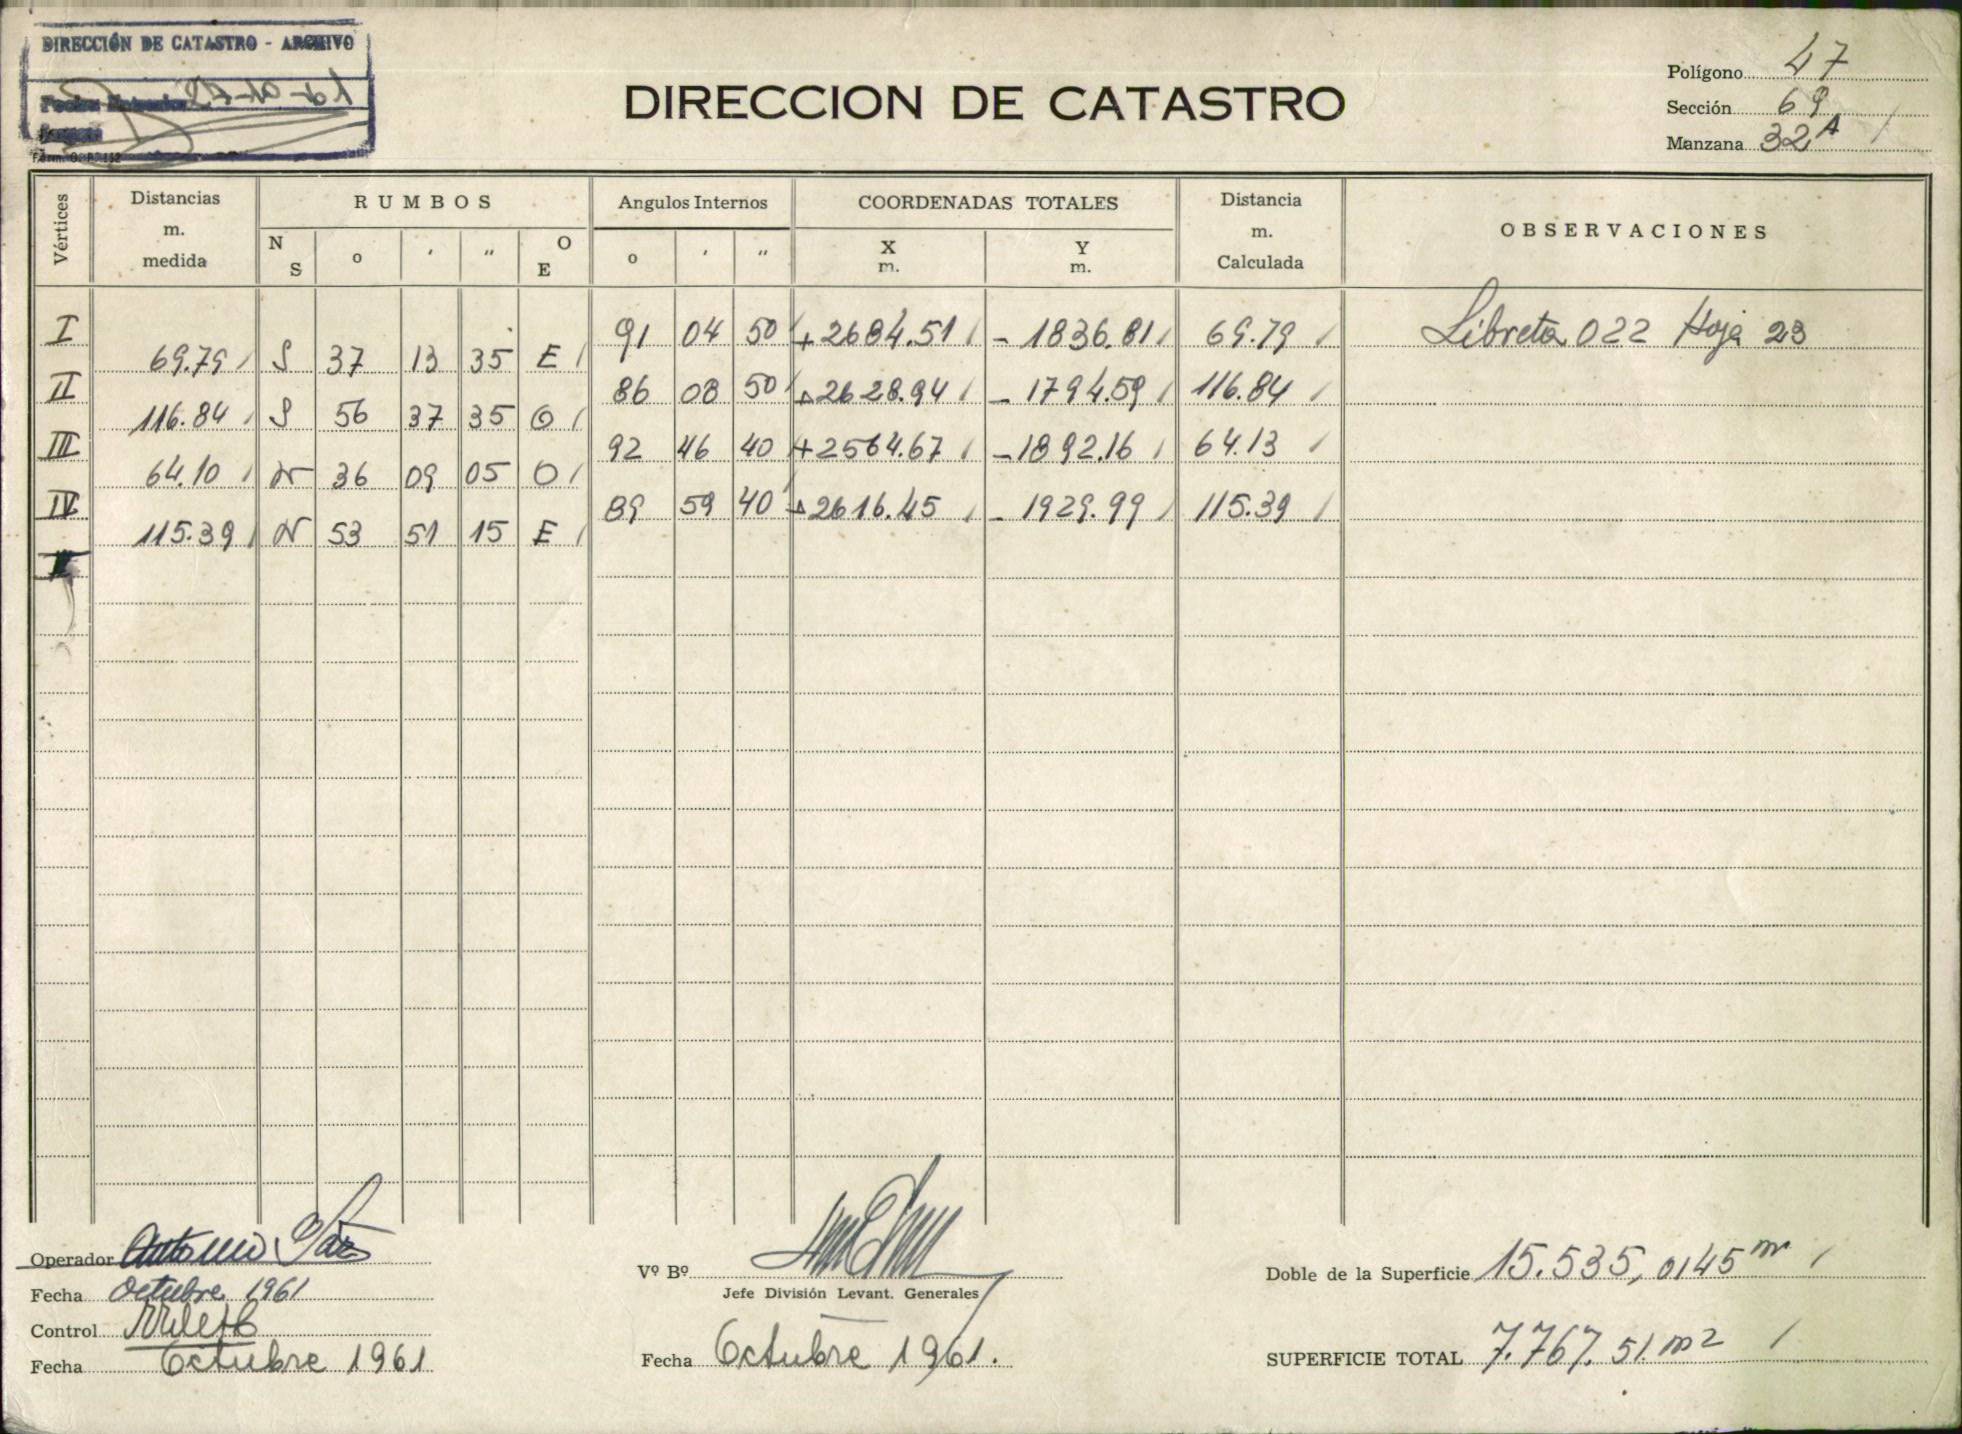 DIRECCIÓN DE CATASTRO - ARCHIVO
DIRECCION DE CATASTRO
Polígono 47
Sección 69
Manzana 32A
Vértices Distancias m. medida RUMBOS Angulos Internos COORDENADAS TOTALES Distancia m. Calculada OBSERVACIONES
N S o ' " O E o ' " X m. Y m.
I 91 04 50 +2684.51 - 1836.81 69.79 Libreta 022 Hoja 23
69.79 S 37 13 35 E
II 86 08 50 +2628.94 - 1794.59 116.84
116.84 S 56 37 35 O
III 92 46 40 +2564.67 -1892.16 64.13
64.10 N 36 09 05 O
IV 89 59 40 +2616.45 - 1929.99 115.39
115.39 N 53 51 15 E
Operador Antonio
Fecha Octubre 1961
Control
Fecha Octubre 1961
Vº Bº
Jefe División Levant. Generales
Fecha Octubre 1961.
Doble de la Superficie 15.535,0145 m
SUPERFICIE TOTAL 7.767.51 m2